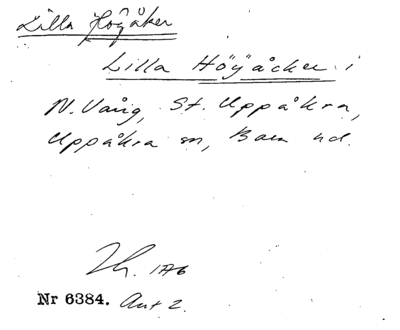 Lilla Höÿåker
Lilla Höÿåcker i
N. Vång, St. Uppåkra,
Uppåkra sn, Bara hd.
Nr 6384. Akt 2.